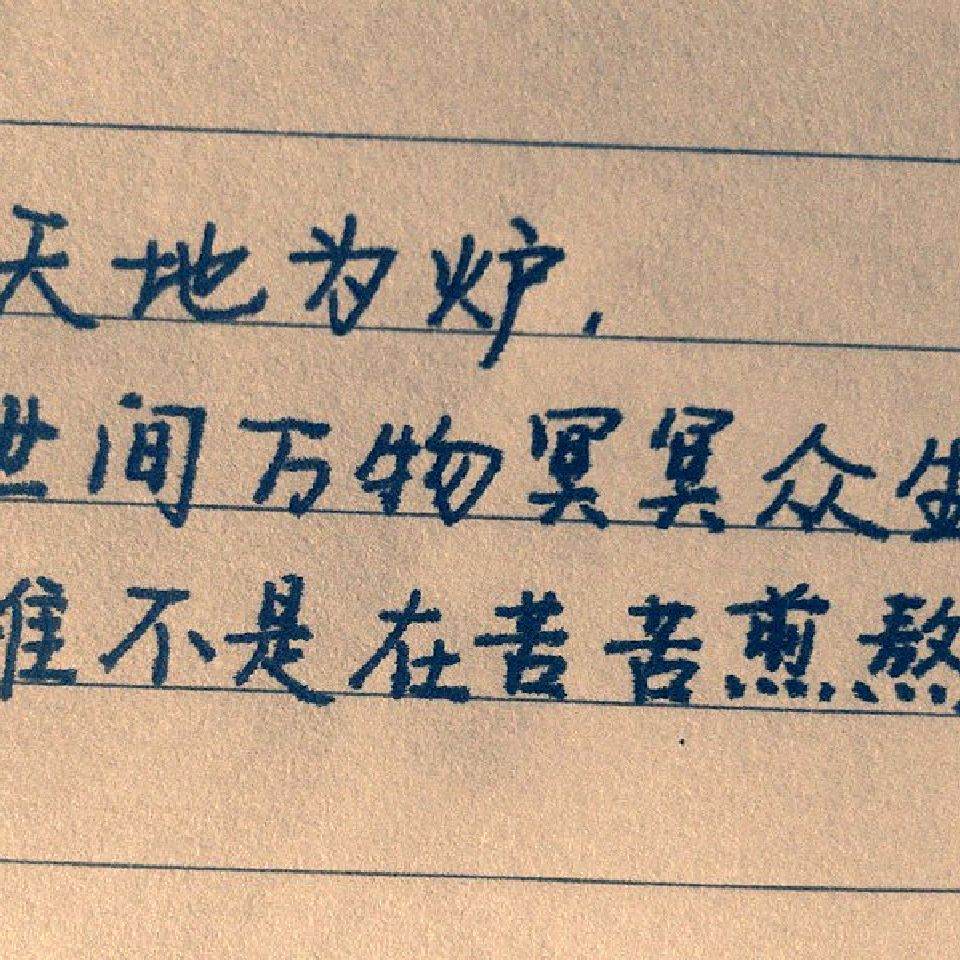 天地为炉，
世间万物冥冥众生
谁不是在苦苦煎熬